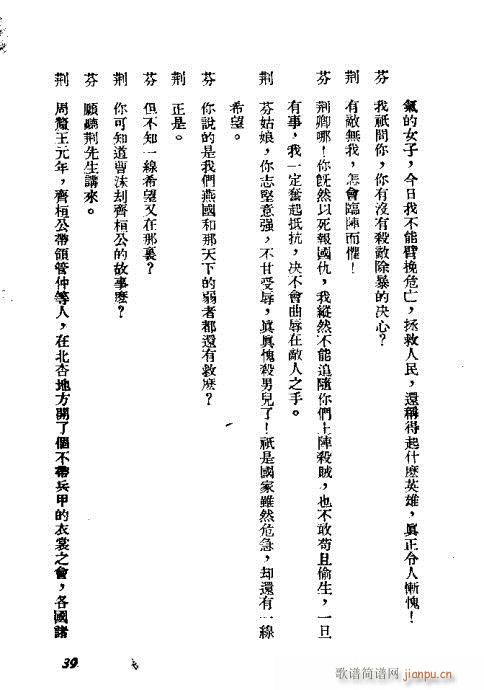 氣的女子，今日我不能臂挽危亡，拯救人民，還稱得起什麽英雄，眞正令人慚愧！
芬　我祇問你，你有沒有殺敵除暴的决心？
荆　有敵無我，怎會臨陣而懼！
芬　荆卿哪！你旣然以死報國仇，我縱然不能追隨你們上陣殺賊，也不敢苟且偷生，一旦
有事，我一定奮起抵抗，决不會曲辱在敵人之手。
荆　芬姑娘，你志堅意强，不甘受辱，眞眞愧殺男兒了！祇是國家雖然危急，却還有一線
希望。
芬　你說的是我們燕國和那天下的弱者都還有救麽？
荆　正是。
芬　但不知一線希望又在那裏？
荆　你可知道曹沫刦齊桓公的故事麽？
芬　願聽荆先生講來。
荆　周釐王元年，齊桓公帶領管仲等人，在北杏地方開了個不帶兵甲的衣裳之會，各國諸
39
歌谱简谱网
jianpu.cn